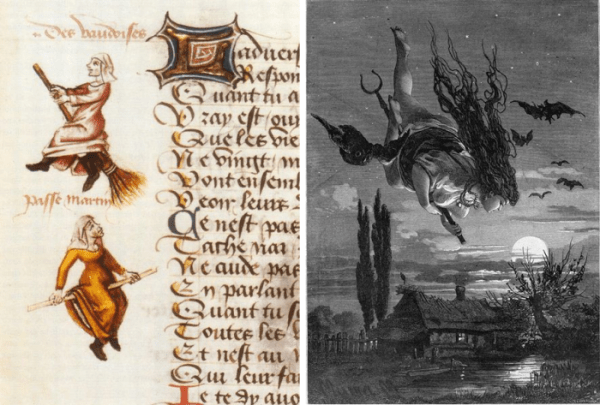 Des vaudoises
passe martin
adver
Respon
Quant tu a
Vray est ou
Que les vie
Ne vingt m
Vont ensem
Veoir leurs
Ce nest pas
Ne cuide pas
En parlant
Quant tu s
Toutes les
Et nest au
Qui leur fa
Je te dy